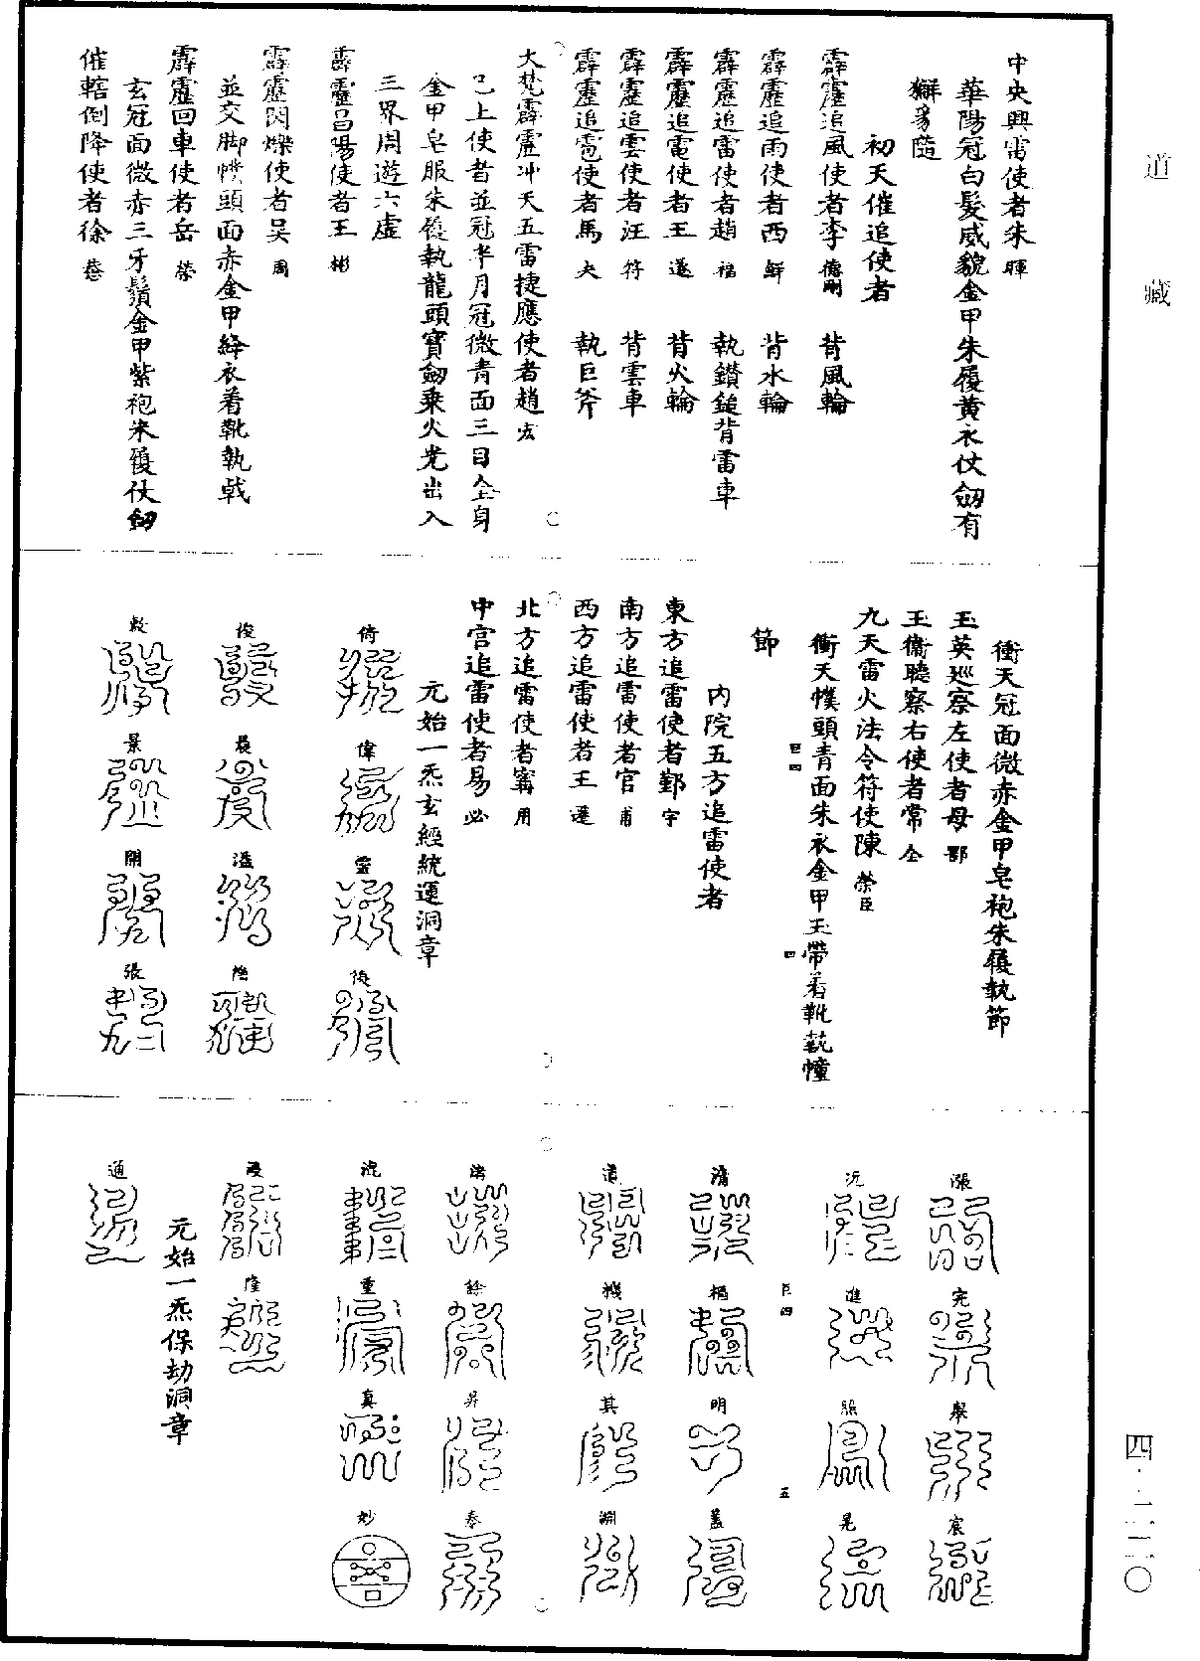 道藏
中央興雷使者朱暉
華陽冠白髮威貌金甲朱履黃衣仗劒有
獬豸隨
初天催追使者
霹靂追風使者李德剛 背風輪
霹靂追雨使者西鮮 背水輪
霹靂追雷使者趙福 執鑽鎚背雷車
霹靂追電使者王遂 背火輪
霹靂追雲使者汪符 背雲車
霹靂追雹使者馬夬 執巨斧
大梵霹靂冲天五雷捷應使者趙宏
已上使者並冠半月冠微青面三目全身
金甲皂服朱履執龍頭寶劒乘火光出入
三界周遊六虛
霹靂昌陽使者王彬
霹靂閃爍使者吳周
並交脚幞頭面赤金甲絳衣着靴執戟
霹靂回車使者岳榮
玄冠面微赤三牙鬚金甲紫袍朱履仗劒
催轄倒降使者徐
衝天冠面微赤金甲皂袍朱履執節
玉英巡察左使者母鄂
玉衛聽察右使者常全
九天雷火法令符使陳榮臣
衝天幞頭青面朱衣金甲玉帶着靴執幢
節
內院五方追雷使者
東方追雷使者鄞宇
南方追雷使者官甫
西方追雷使者王遷
北方追雷使者甯用
中宮追雷使者易必
元始一炁玄經統運洞章
倚 偉 靈
俊 晨 溢
景 開 張
漲 完 宸
沅 進 照 晃
清 樞 明 蓋
道 機 其 淵
餘 昇 泰
混 重 真 妙
隆
通
元始一炁保劫洞章
四·二二〇